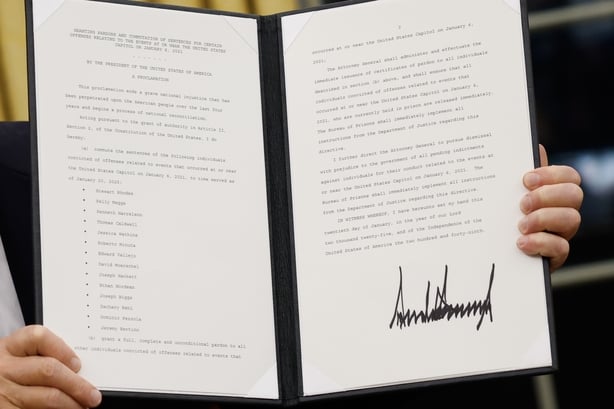 GRANTING PARDONS AND COMMUTATION OF SENTENCES FOR CERTAIN
OFFENSES RELATING TO THE EVENTS AT OR NEAR THE UNITED STATES
CAPITOL ON JANUARY 6, 2021
- - - - - - -
BY THE PRESIDENT OF THE UNITED STATES OF AMERICA
A PROCLAMATION
This proclamation ends a grave national injustice that has
been perpetrated upon the American people over the last four
years and begins a process of national reconciliation.
Acting pursuant to the grant of authority in Article II,
Section 2, of the Constitution of the United States, I do
hereby:
(a) commute the sentences of the following individuals
convicted of offenses related to events that occurred at or near
the United States Capitol on January 6, 2021, to time served as
of January 20, 2025:
• Stewart Rhodes
• Kelly Meggs
• Kenneth Harrelson
• Thomas Caldwell
• Jessica Watkins
• Roberto Minuta
• Edward Vallejo
• David Moerschel
• Joseph Hackett
• Ethan Nordean
• Joseph Biggs
• Zachary Rehl
• Dominic Pezzola
• Jeremy Bertino
(b) grant a full, complete and unconditional pardon to all
other individuals convicted of offenses related to events that
2
occurred at or near the United States Capitol on January 6,
2021.
The Attorney General shall administer and effectuate the
immediate issuance of certificates of pardon to all individuals
described in section (b) above, and shall ensure that all
individuals convicted of offenses related to events that
occurred at or near the United States Capitol on January 6,
2021, who are currently held in prison are released immediately.
The Bureau of Prisons shall immediately implement all
instructions from the Department of Justice regarding this
directive.
I further direct the Attorney General to pursue dismissal
with prejudice to the government of all pending indictments
against individuals for their conduct related to the events at
or near the United States Capitol on January 6, 2021. The
Bureau of Prisons shall immediately implement all instructions
from the Department of Justice regarding this directive.
IN WITNESS WHEREOF, I have hereunto set my hand this
twentieth day of January, in the year of our Lord
two thousand twenty-five, and of the Independence of the
United States of America the two hundred and forty-ninth.